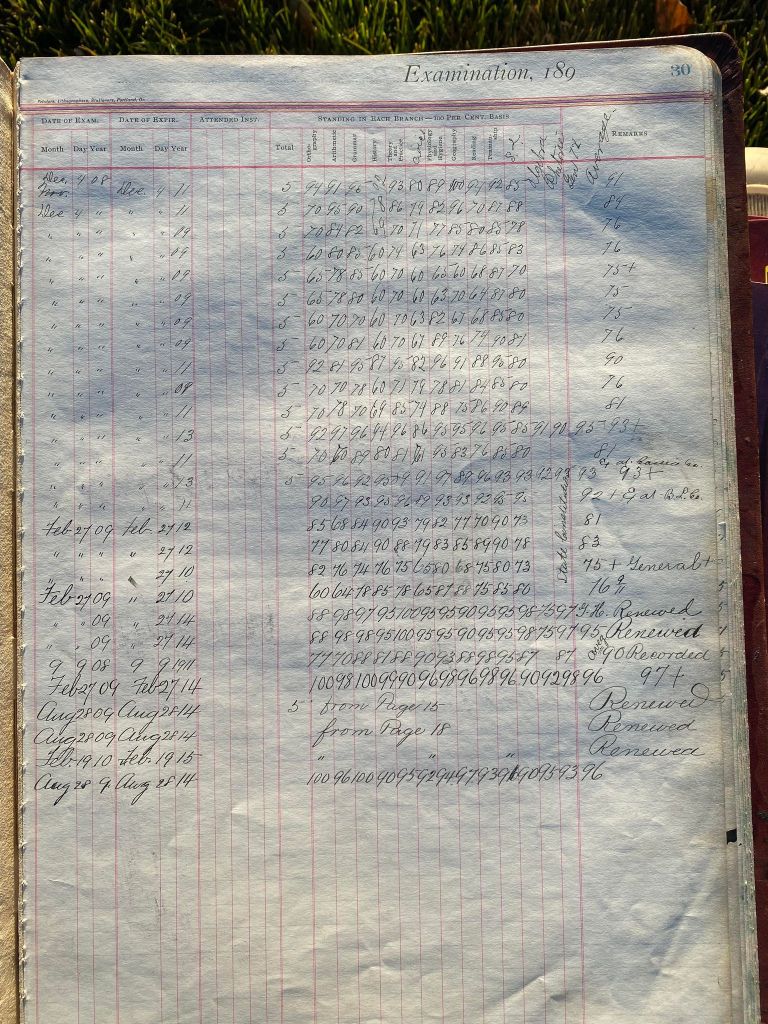 Examination, 189
30
DATE OF EXAM. DATE OF EXPIR. ATTENDED INST. STANDING IN EACH BRANCH—100 PER CENT. BASIS
Month Day Year Month Day Year Total Arithmetic Grammar History Theory and Practice Physiology and Hygiene Geography Reading Penmanship S.L. Algebra Average. REMARKS
Dec. 4 08 Dec. 4 11 5 94 91 95 93 80 89 100 94 92 85 91
Dec 4 " " 11 5 70 95 90 78 86 79 82 96 70 87 88 84
" " " " " 09 5 70 84 82 69 70 71 77 85 80 85 78 76
" " " " " 09 5 60 80 85 60 74 63 76 74 86 85 83 76
" " " " " 09 5 65 78 85 60 70 60 65 60 68 87 70 75+
" " " " " 09 5 65 78 80 60 70 60 63 70 64 87 80 75
" " " " " 09 5 60 70 70 60 70 63 82 67 68 85 80 75
" " " " " 09 5 60 70 81 60 70 67 89 76 74 90 81 76
" " " " " 11 5 92 81 95 87 95 82 96 91 88 95 80 90
" " " " " 09 5 70 70 78 60 71 79 78 81 84 85 80 76
" " " " " 11 5 70 78 70 69 85 74 88 75 86 90 89 81
" " " " " 13 5 92 97 96 94 96 86 95 95 96 95 85 91 90 95 93+
" " " " " 11 5 70 60 89 80 81 95 83 76 85 80 81
" " " " " 13 5 95 96 92 95 91 97 89 96 93 93 92 93 93 93+
" " " " " 11 90 97 93 95 96 89 93 93 92 95 92+
State Constitution
Feb 27 09 Feb 27 12 85 68 84 90 93 79 82 77 70 90 73 81
" " " " 27 12 77 80 84 90 88 79 83 85 89 90 78 83
" " " 27 10 82 76 74 76 75 65 80 68 75 80 73 75+ General+
Feb 27 09 " 27 10 60 64 78 85 78 65 87 88 75 85 80 76
" " 09 " 27 14 88 98 97 95 100 95 95 90 95 95 98 75 97 Renewed
" " 09 " 27 14 88 98 98 95 100 95 95 90 95 95 98 75 97 95 Renewed
9 9 08 9 9 1911 77 70 88 81 88 90 93 88 98 95 87 87 90 Recorded
Feb 27 09 Feb 27 14 100 98 100 99 90 96 98 96 98 96 90 92 98 96 97+
Aug 28 09 Aug 28 14 5 from Page 15 Renewed
Aug 28 09 Aug 28 14 from Page 18 Renewed
Feb 19 10 Feb 19 15 " " Renewed
Aug 28 9 Aug 28 14 100 96 100 90 95 92 94 97 93 91 90 95 93 96